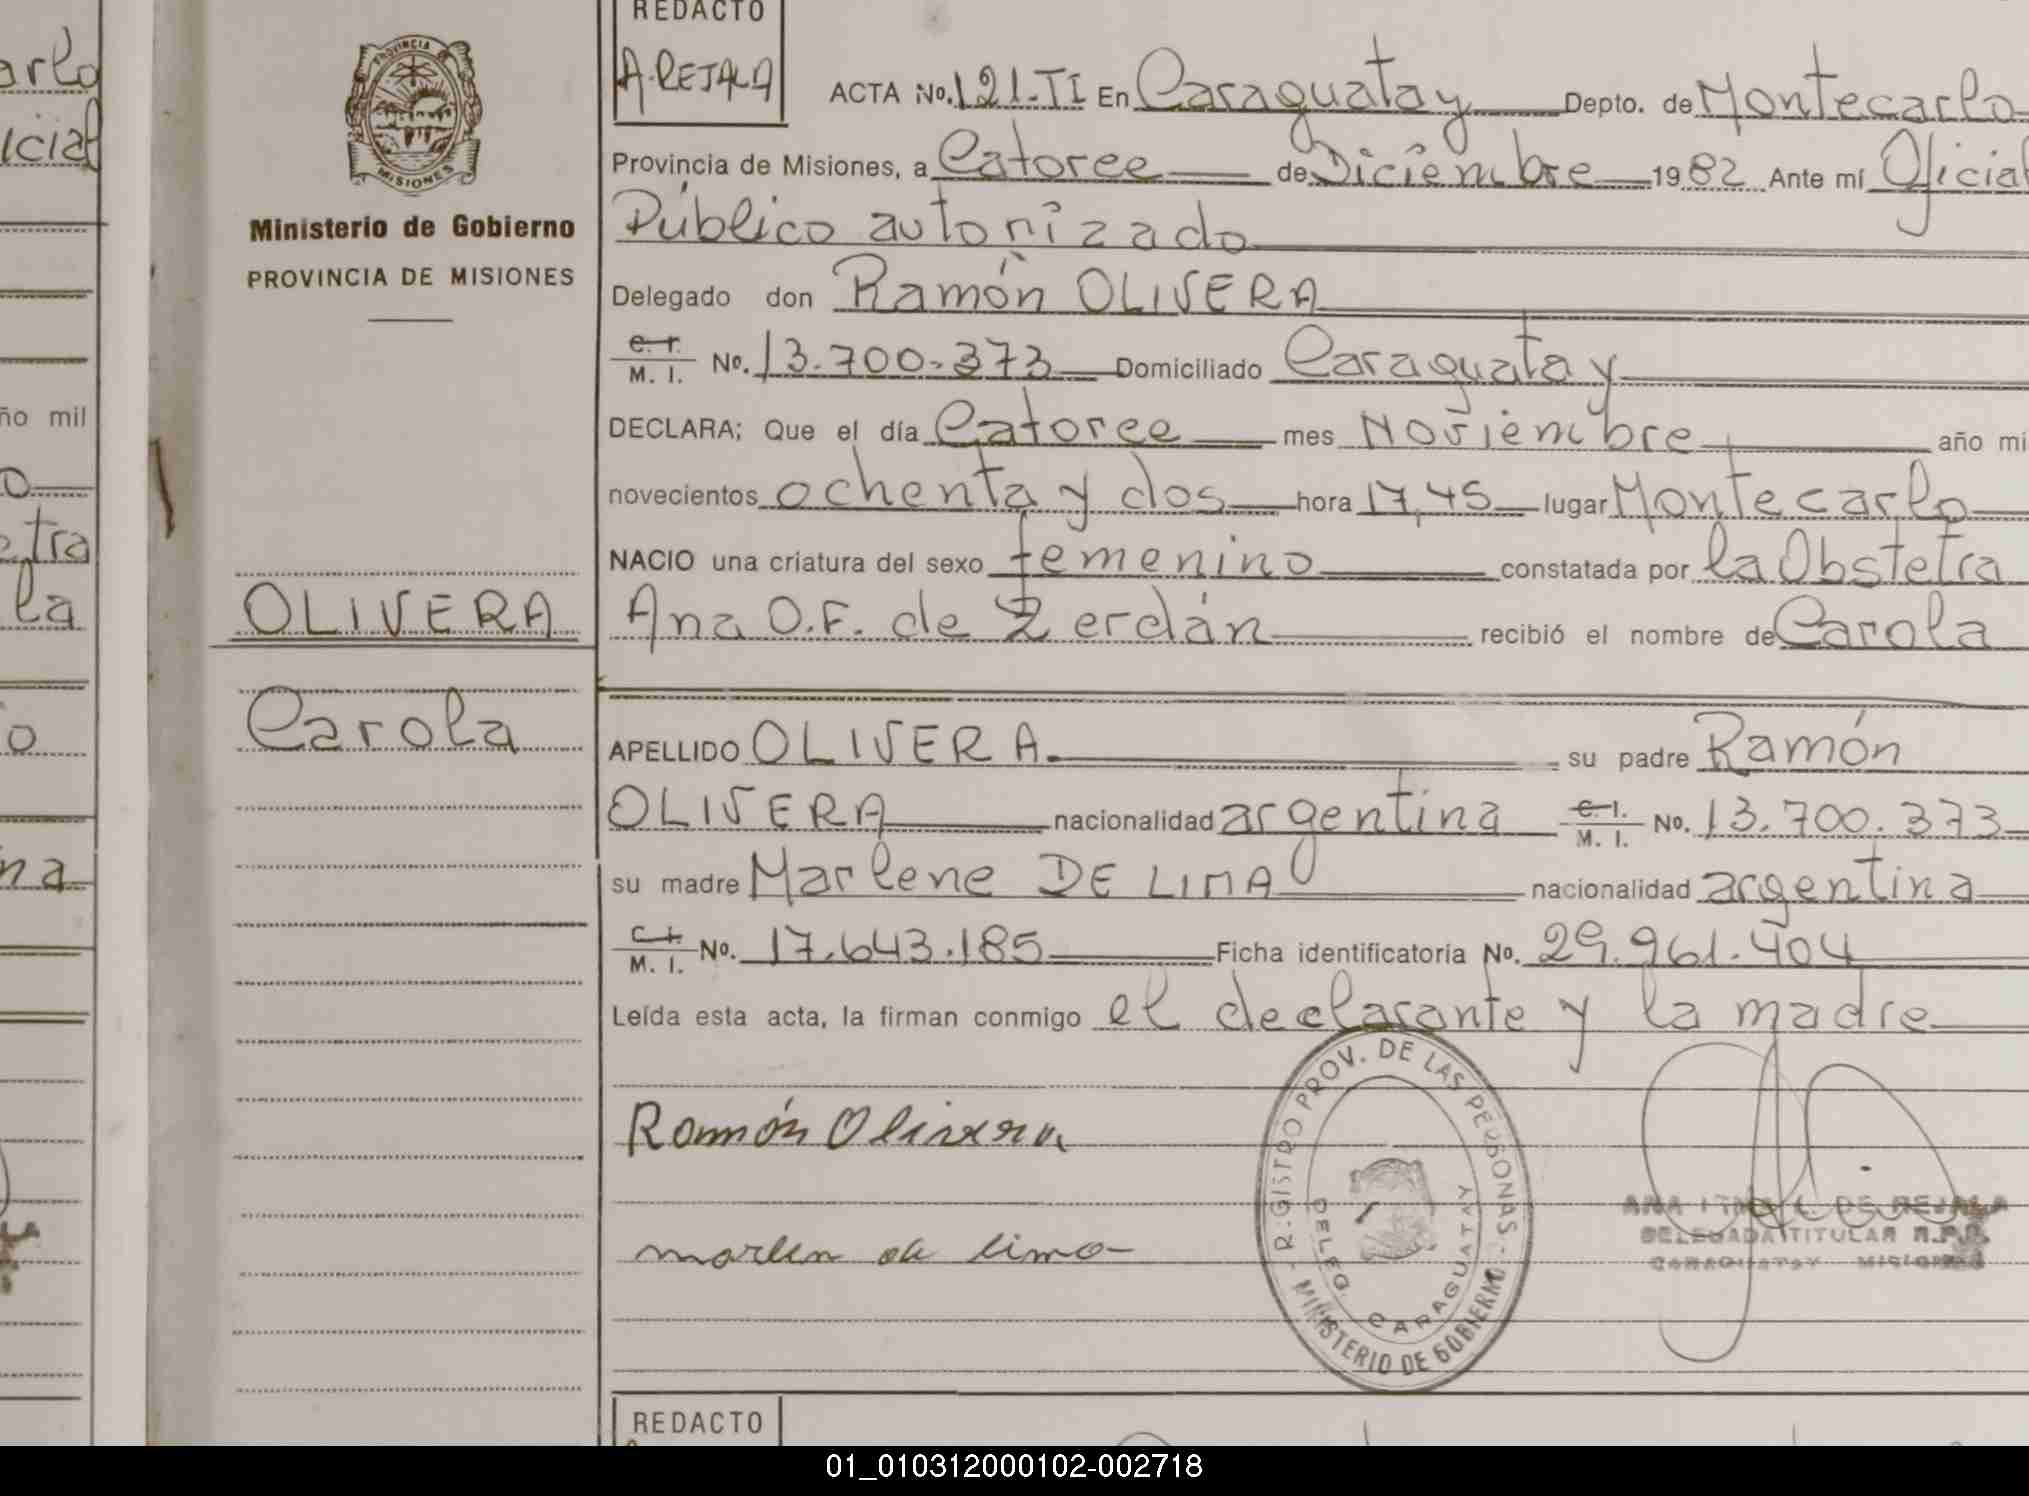 REDACTO
A. REJALA
PROVINCIA DE
MISIONES
Ministerio de Gobierno
PROVINCIA DE MISIONES
OLIVERA
Carola
ACTA No. 121-TI En Caraguatay Depto. de Montecarlo
Provincia de Misiones, a Catorce de Diciembre 1982 Ante mí Oficial
Público autorizado
Delegado don Ramón OLIVERA
C. I. M. I. No. 13.700.373 Domiciliado Caraguatay
DECLARA; Que el día Catorce mes Noviembre año mi
novecientos ochenta y dos hora 17,45 lugar Montecarlo
NACIO una criatura del sexo femenino constatada por la Obstetra
Ana O.F. de Zerdán recibió el nombre de Carola
APELLIDO OLIVERA. su padre Ramón
OLIVERA nacionalidad argentina C. I. M. I. No. 13.700.373
su madre Marlene DE LIMA nacionalidad argentina
C. I. M. I. No. 17.643.185 Ficha identificatoria No. 29.961.404
Leída esta acta, la firman conmigo el declarante y la madre
Ramón Olivera
marlen de lima
REGISTRO PROV. DE LAS PERSONAS - MINISTERIO DE GOBIERNO -
DELEG. CARAGUATAY
DE REJALA
DELEGADA TITULAR R.P.P.
CARAGUATAY MISIONES
REDACTO
arlo
icial
ño mil
o
etra
la
o
na
01_010312000102-002718